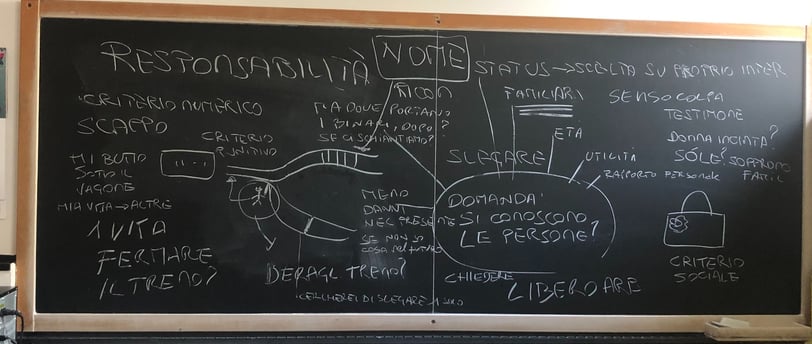 RESPONSABILITÀ
NOME
STATUS → SCELTA SU PROPRIO INTER
CRITERIO NUMERICO
SCAPPO
MI BUTTO
SOTTO IL
VAGONE
MIA VITA → ALTRE
1 VITA
FERMARE
IL TRENO?
CRITERIO
PUNITIVO
MA DOVE PORTANO
I BINARI, DOPO?
SE CI SCHIANTIAMO?
DERAGL TRENO?
CERCHEREI DI SLEGARE
MENO
DANNI
NEL PRESENTE
SE NON SO
COSA NEL FUTURO
CHIEDERE
FAMILIARI
SENSO COLPA
TESTIMONE
ETÀ
DONNA INCINTA?
SLEGARE
UTILITÀ
SÓLE?
RAPPORTO PERSONALE
DOMANDA:
SI CONOSCONO
LE PERSONE?
CRITERIO
SOCIALE
LIBERO ARB